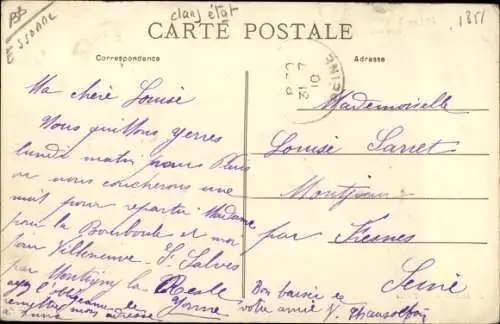 BB
ESSONNE
clans état
1351
CARTE POSTALE
Correspondance
Adresse
31 7
10
Ma chère Louise
Nous quittons Yerres
lundi matin pour Paris
ou nous coucherons une
nuit pour repartir Madame
pour la Bourboule et moi
pour Villeneuve - St Salves
par Montigny la Resle
Yonne
ayez l'obligeance de
remettre mon adresse
à
Bon baiser de
votre amie V.
Mademoiselle
Louise Sarret
Montjean
par Fresnes
Seine